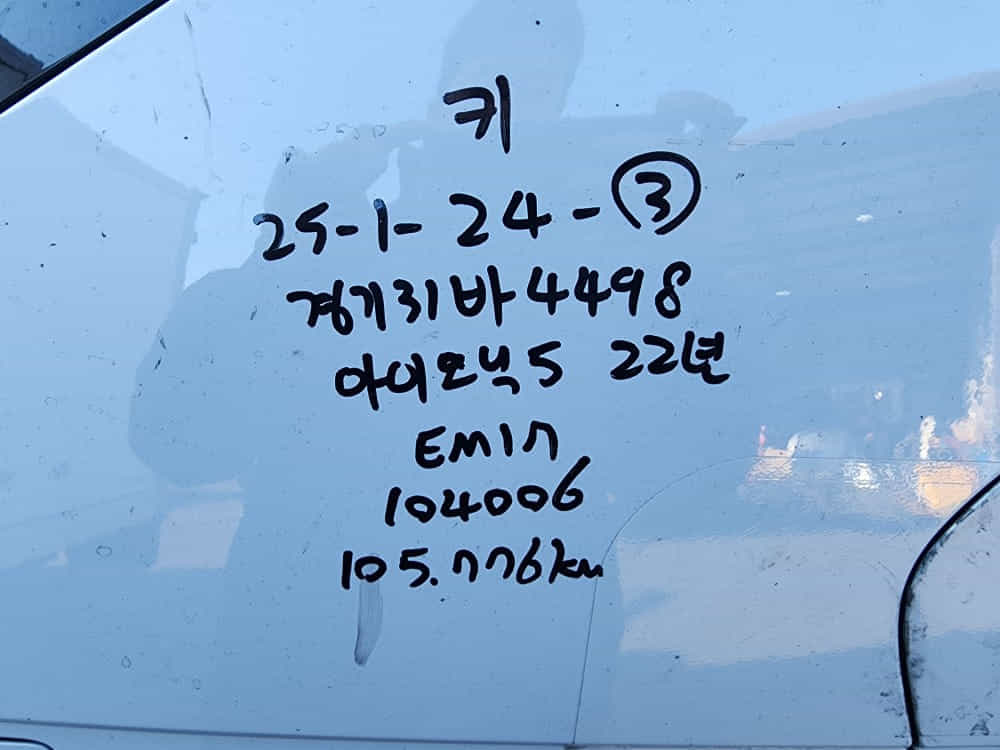 키
25-1-24-③
경기31바4498
아이오닉5 22년
EM17
104006
105.776km